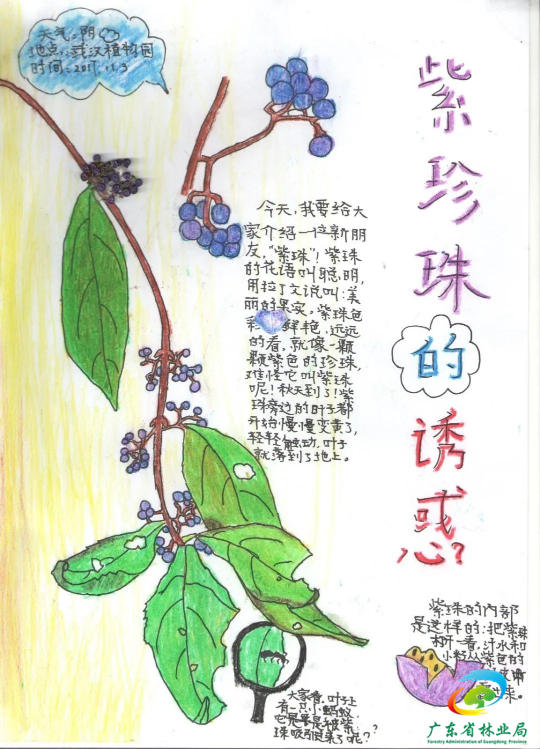 天气:阴
地点:武汉植物园
时间:2017.11.3
紫珍珠的诱惑?
今天,我要给大
家介绍一位新朋
友,“紫珠”!紫珠
的花语叫聪明,
用拉丁文说叫:美
丽的果实。紫珠色
彩鲜艳,远远
的看,就像一颗
颗紫色的珍珠,
难怪它叫紫珠
呢!秋天到了!紫
珠旁边的叶子都
开始慢慢变黄了,
轻轻触动,叶子
就落到了地上。
紫珠的内部
是这样的:把紫珠
掰开一看,汁水和
小籽从紫色的
来。
大家看,叶子上
有一只小蚂蚁,
它是不是被紫
珠吸引来了呢??
广东省林业局
Forestry Administration of Guangdong Province